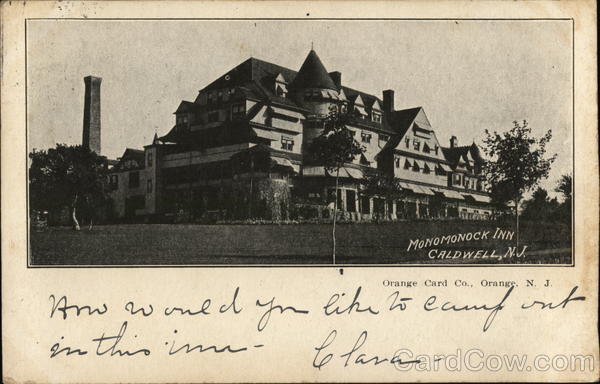 MONOMONOCK INN
CALDWELL, N.J.
Orange Card Co., Orange, N. J.
How would you like to camp out
in this inn - Clara -
CardCow.com